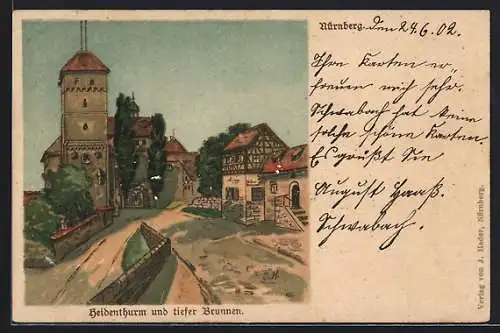 Nürnberg, den 24.6.02.
Ihre Karten er-
freuen mich sehr.
Schwabach hat keine
solche schöne Karten.
Es grüßt Sie
August Haas.
Schwabach.
Heidenthurm und tiefer Brunnen.
Verlag von J. Hader, Nürnberg.